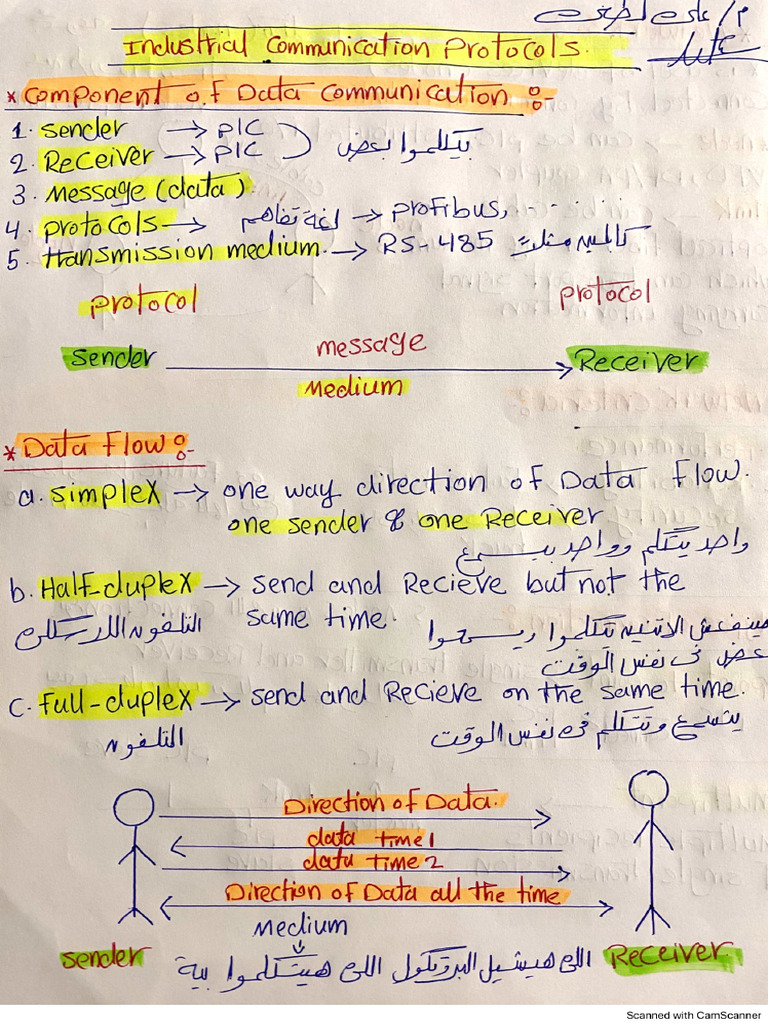 Industrial Communication Protocols.
* Component of Data Communication :-
1. Sender → PLC
2. Receiver → PLC بيتكلموا بعض
3. Message (data).
4. Protocols → لغة تفاهم → Profibus, ......
5. transmission medium. → RS-485 كابلين مثلا
protocol protocol
Sender message Receiver
Medium
* Data Flow :-
a. simplex → one way direction of Data Flow.
one sender & one Receiver
واحد يتكلم وواحد بيسمع
b. Half-duplex → send and Recieve but not the
same time.
التلفون اللاسلكى
مينفعش الاتنين يتكلموا ويسمعوا
بعض فى نفس الوقت
c. Full-duplex → send and Recieve on the same time.
التلفون بتسمع وتتكلم فى نفس الوقت
Direction of Data.
data time 1
data time 2
Direction of Data all the time
Medium
Sender اللى هيشيل البروتوكول اللى هيتكلموا بية Receiver
Scanned with CamScanner